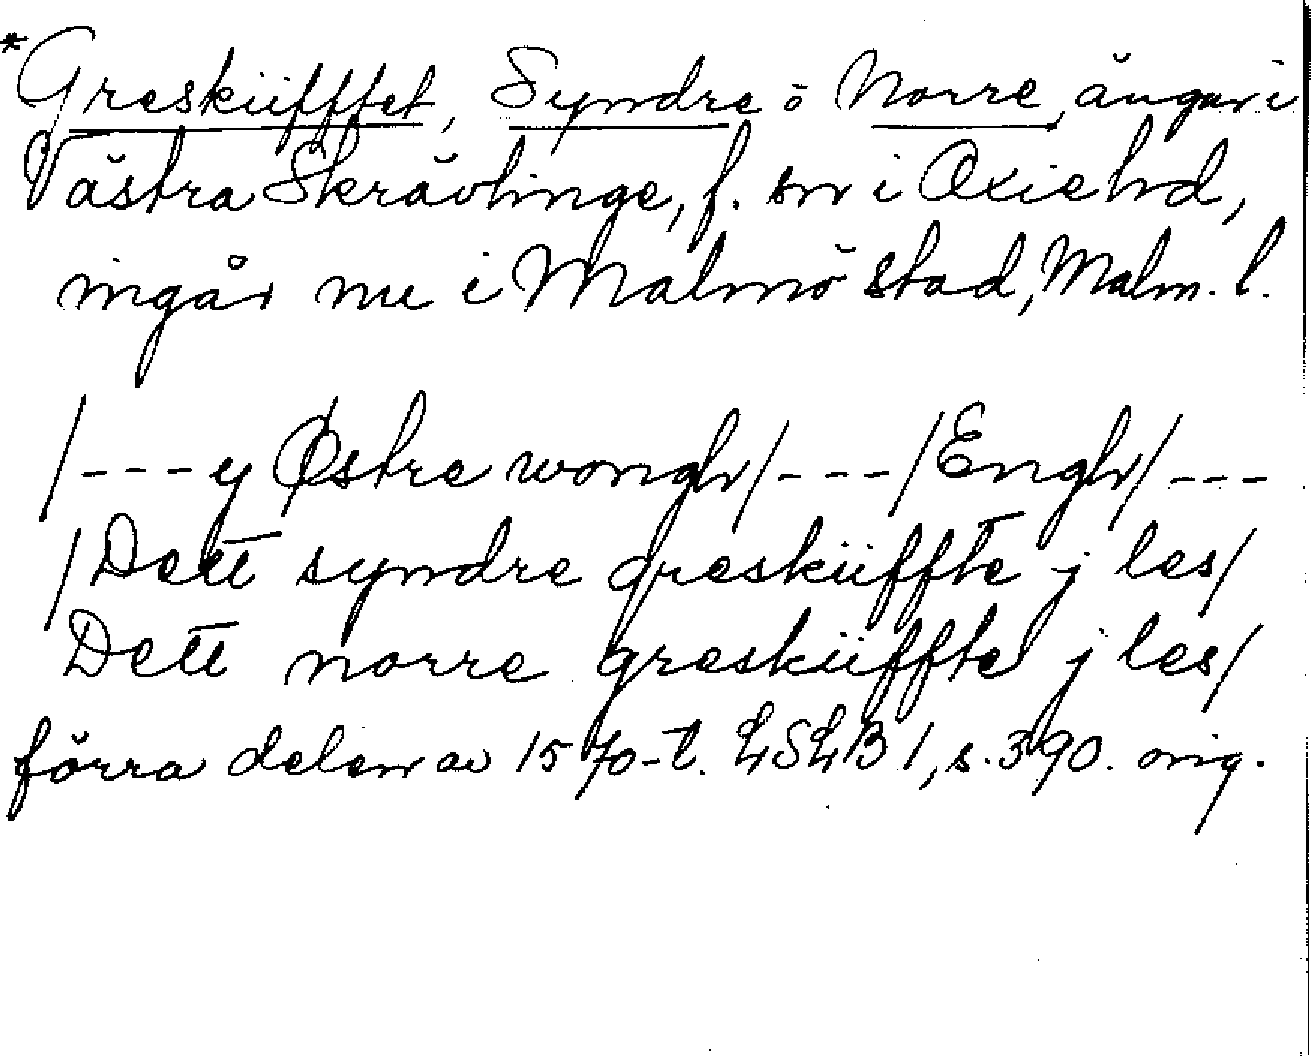 *Greskiifftet, Syndre o Norre, ängar i
Västra Skrävlinge, f. sn i Oxie hd,
ingår nu i Malmö stad, Malm. l.
/---y Østre wongh/---/Engh/---
/Dett syndre greskiiffte j les/
Dett norre greskiiffte j les/
förra delen av 1570-t. LSLB 1, s. 390. orig.